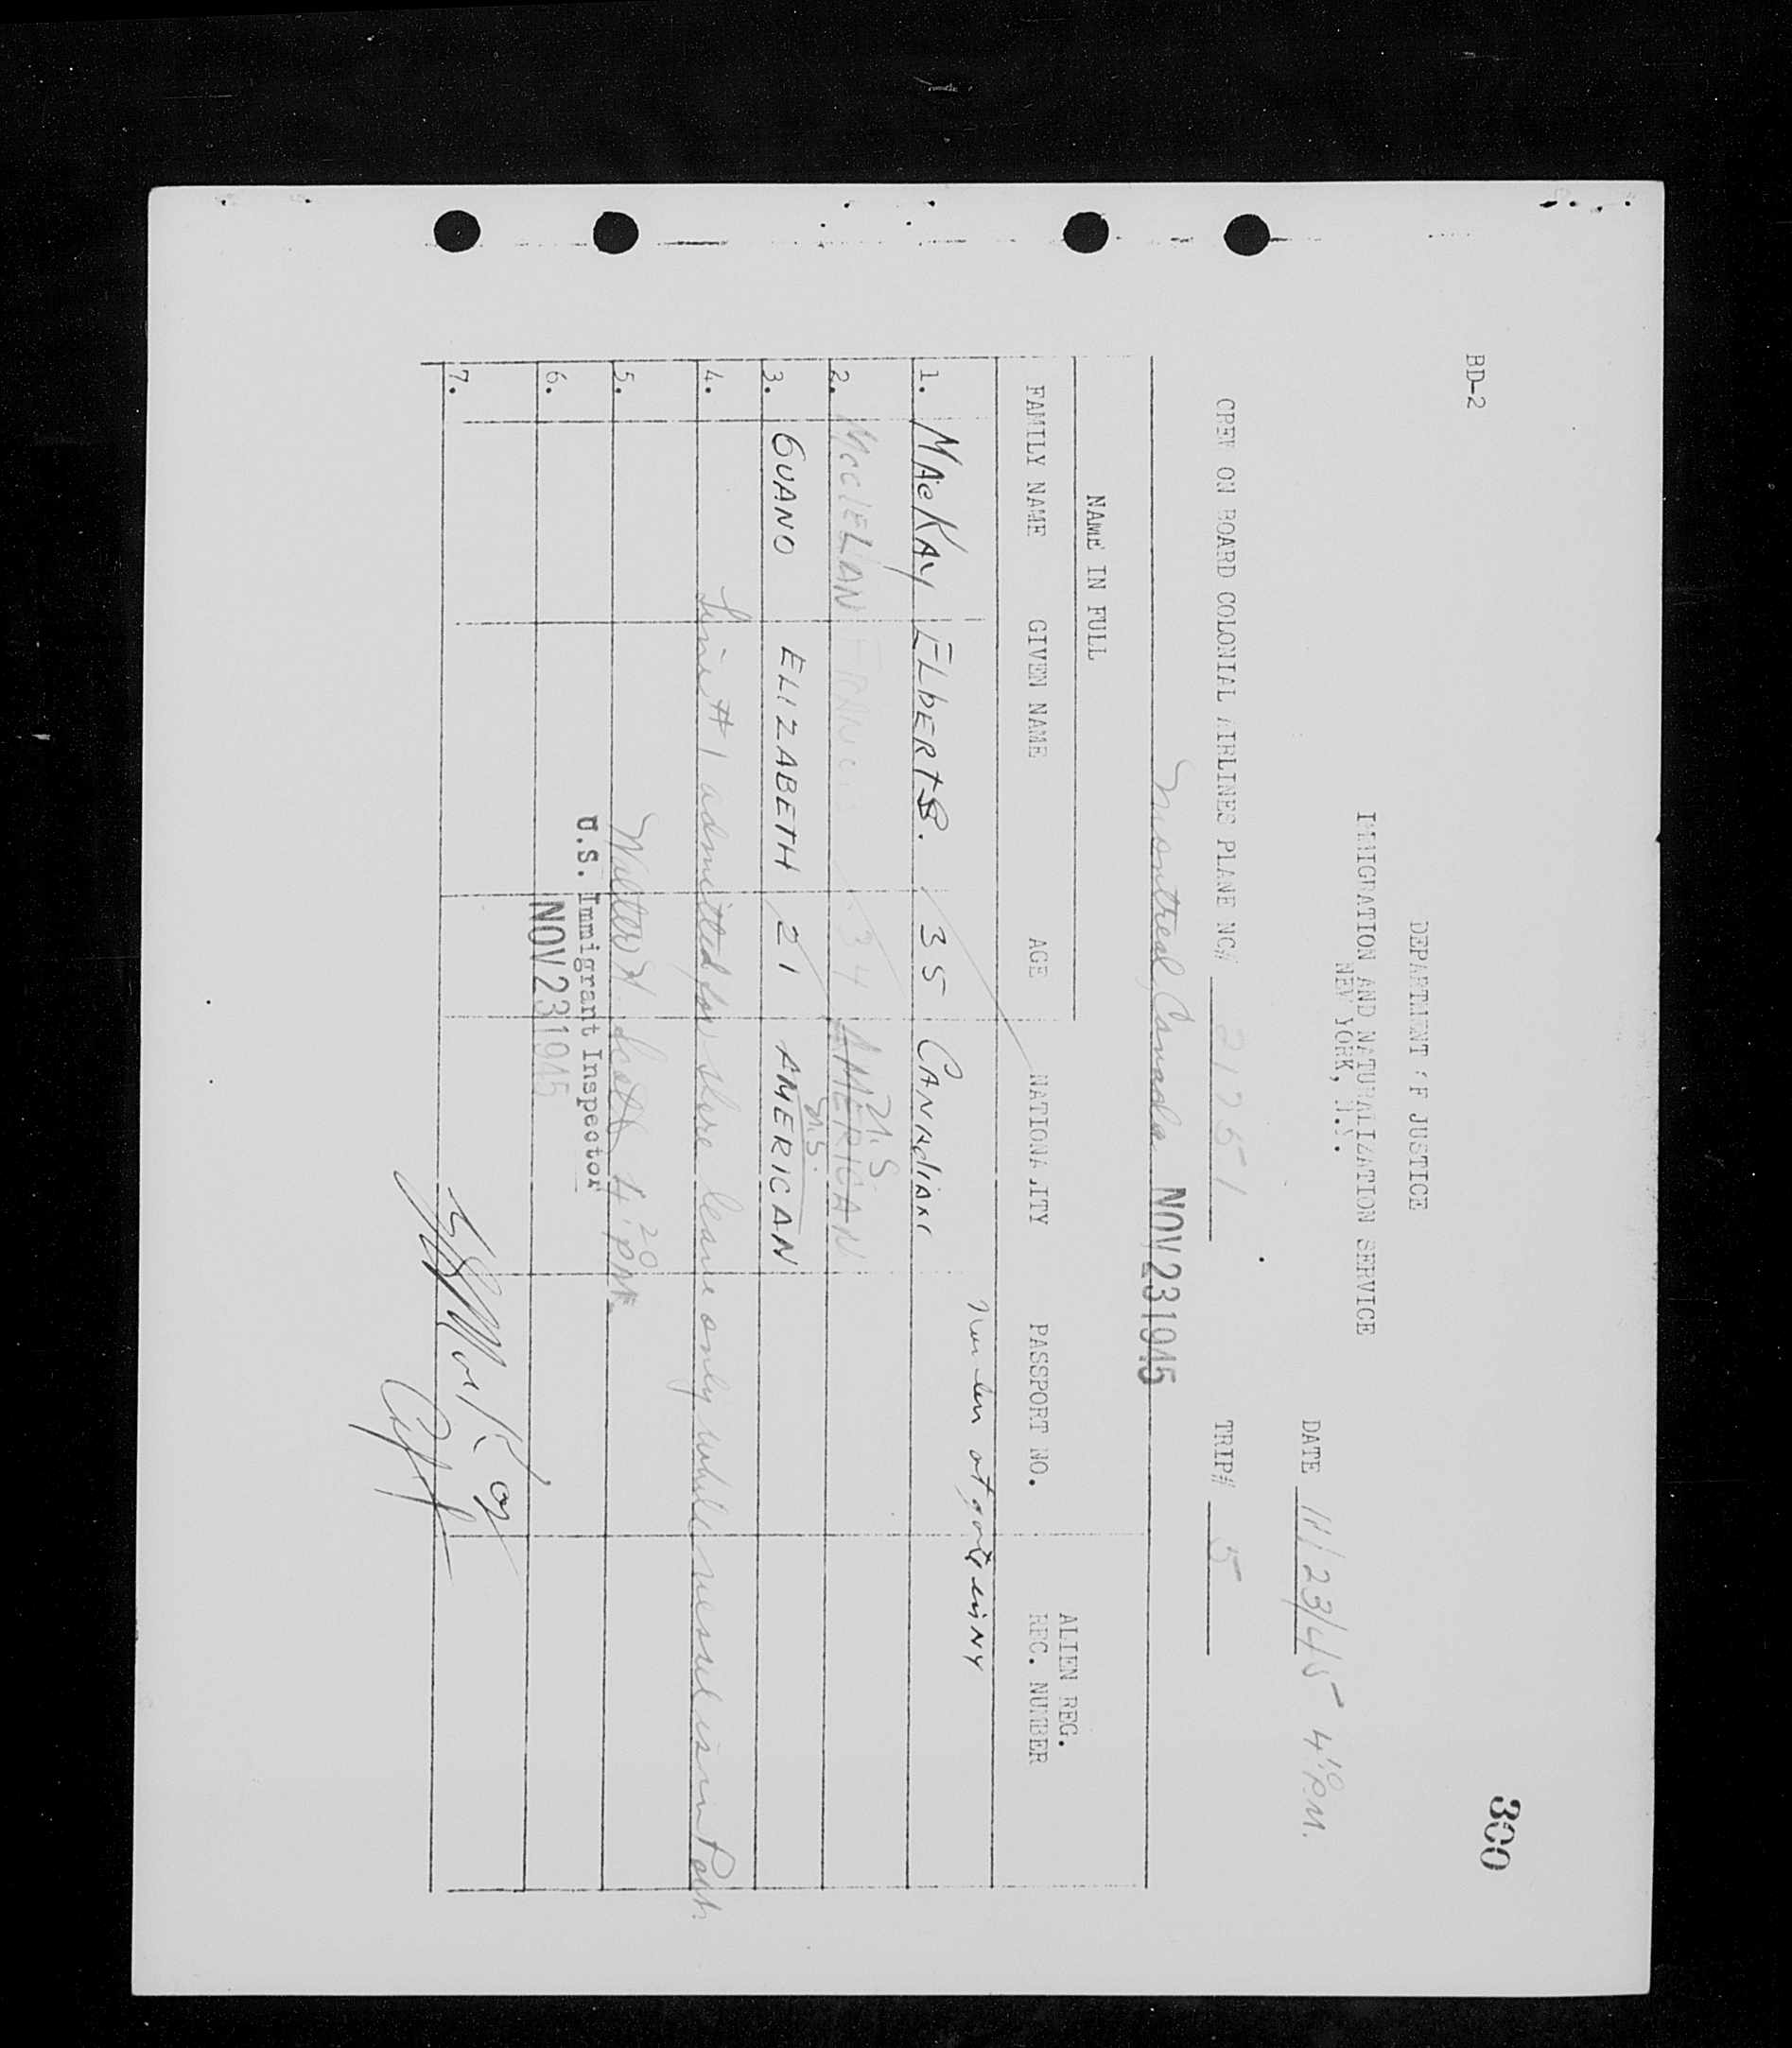 300
BD-2
DEPARTMENT OF JUSTICE
IMMIGRATION AND NATURALIZATION SERVICE
NEW YORK, N.Y.
DATE 11/23/45 4 10 P.M.
CREW ON BOARD COLONIAL AIRLINES PLANE NO# 21751 TRIP# 5
Montreal, Canada NOV 23 1945
NAME IN FULL
FAMILY NAME GIVEN NAME AGE NATIONALITY PASSPORT NO. ALIEN REG. REC. NUMBER
1. MacKAy ELbERT B. 35 CANAdiAN
2. McClELLAN 34 AMERICAN
3. GUANO ELIZABETH 21 AMERICAN
4. Line # 1 admitted for shore leave only while vessel is in Port.
5. Walter H. 4:20 P.M.
U.S. Immigrant Inspector
6. NOV 23 1945
7. MacKay